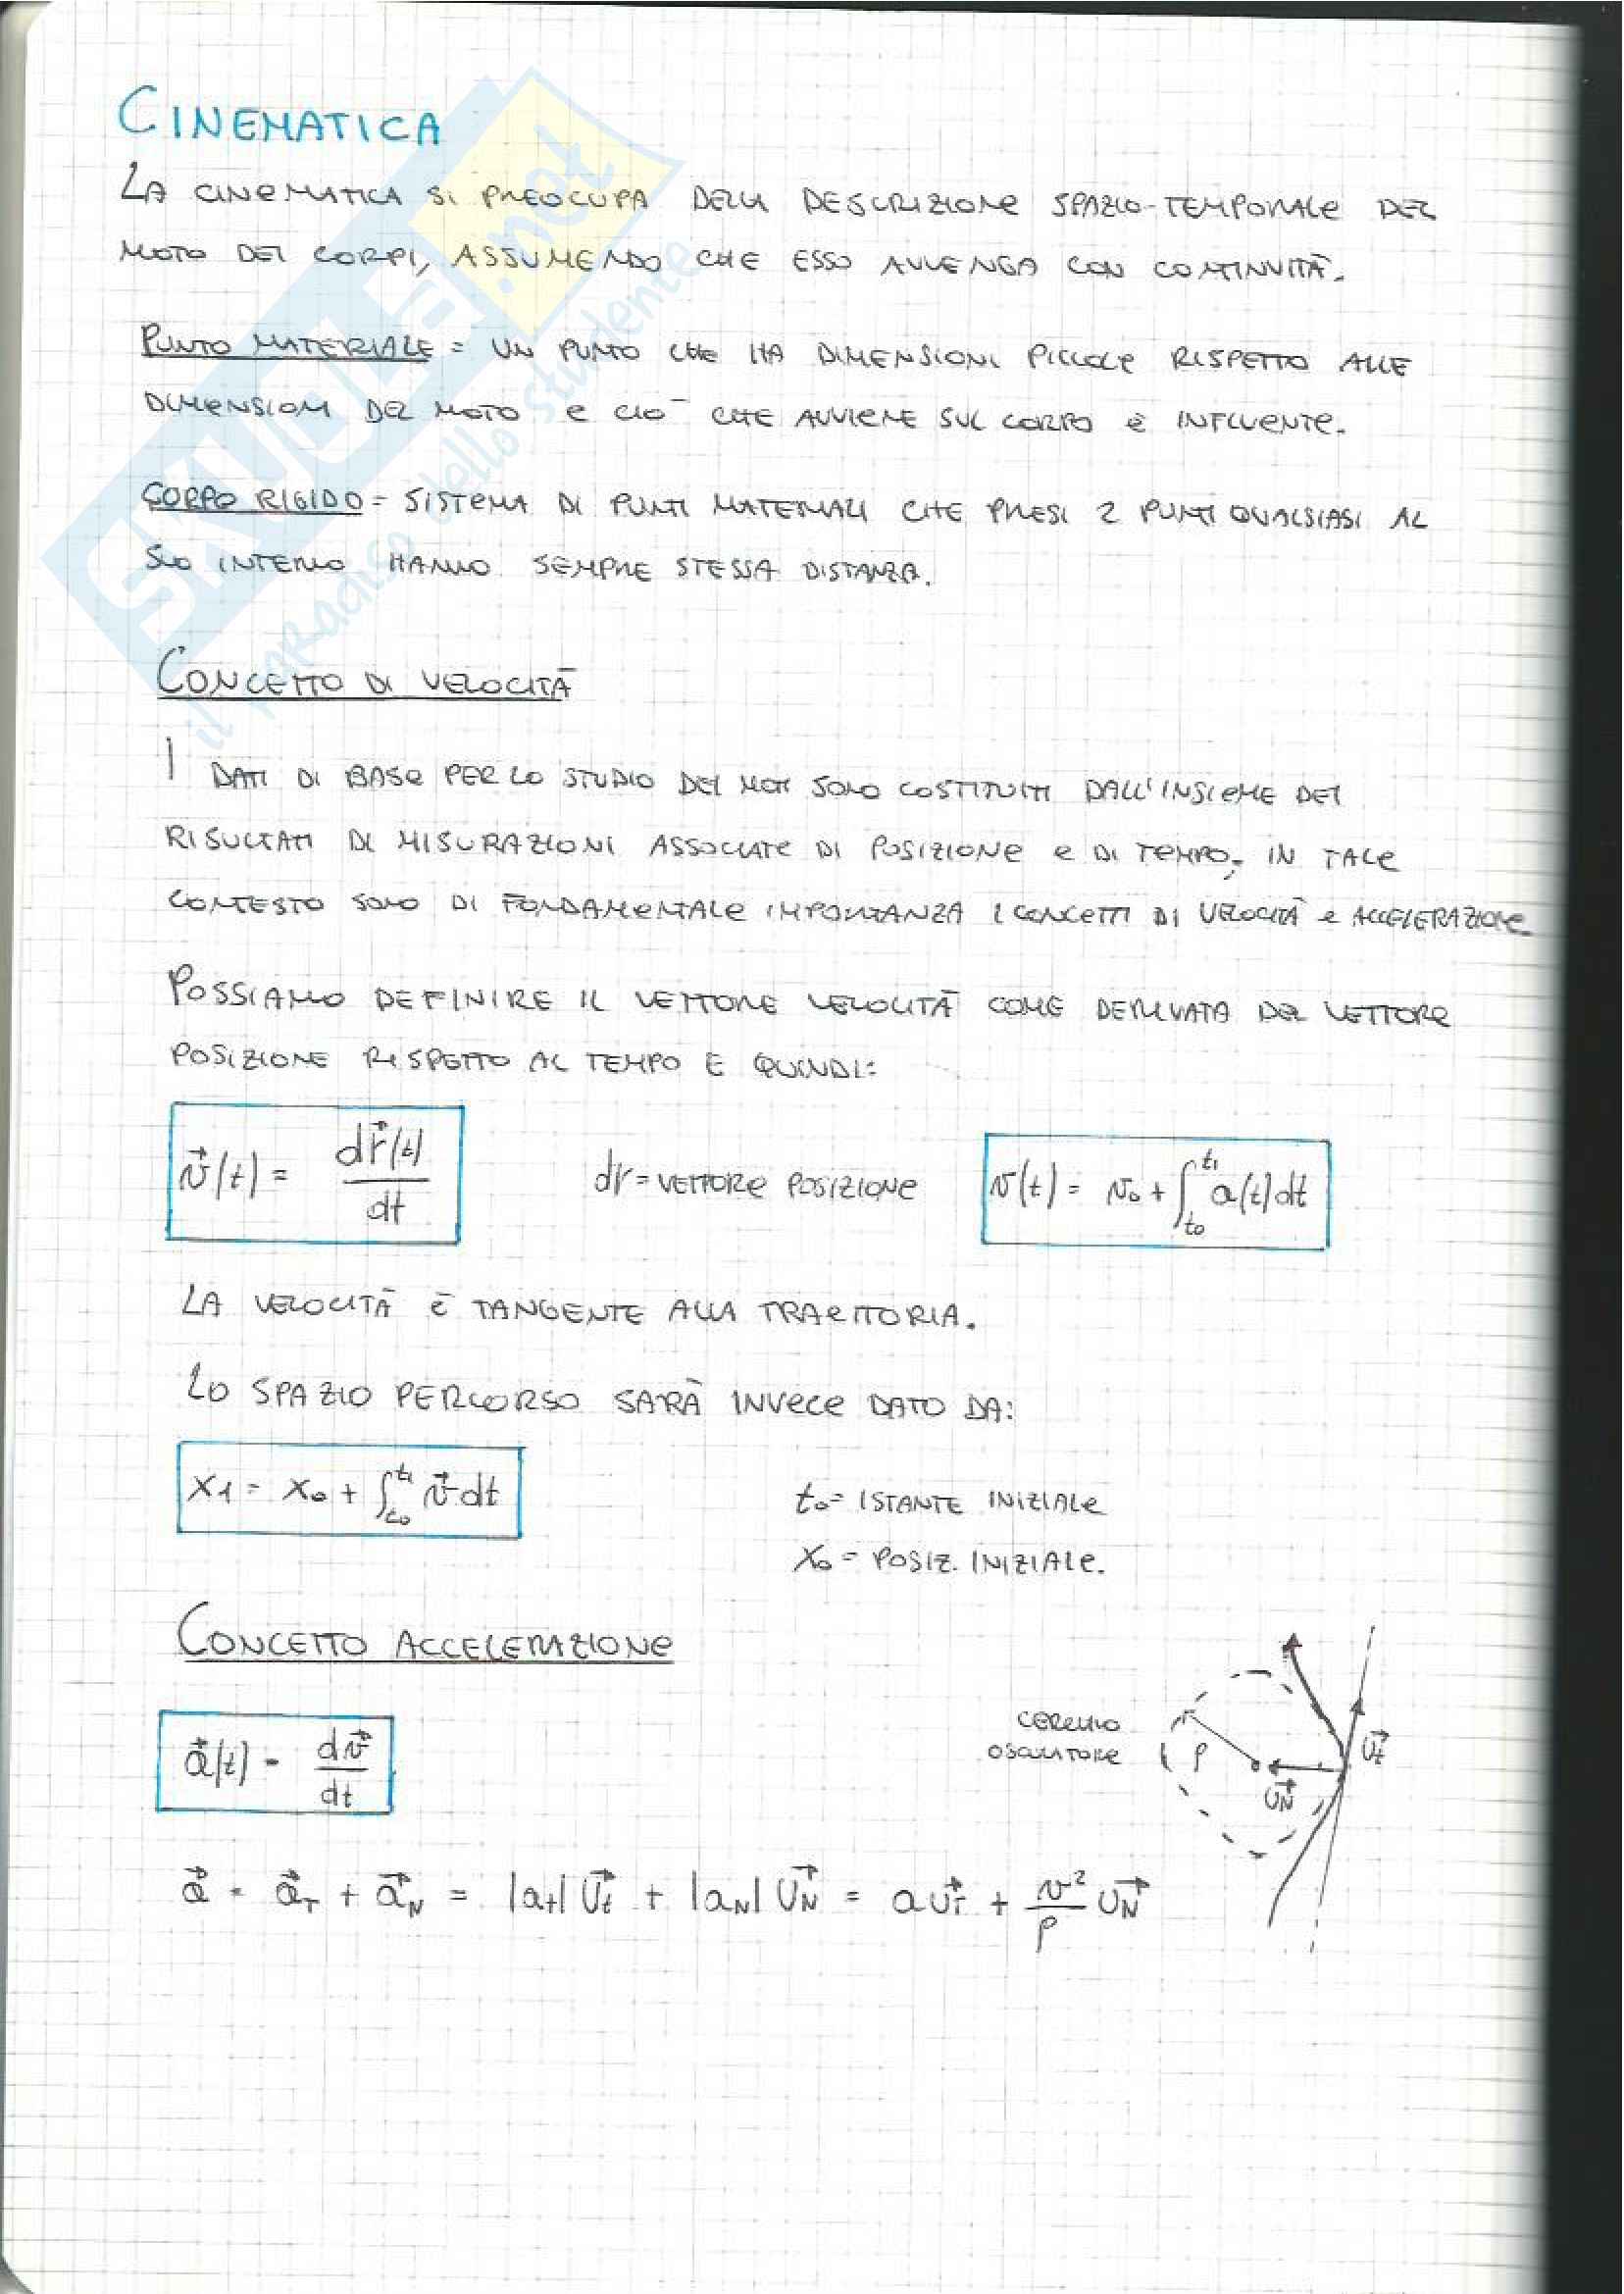 CINEMATICA
LA CINEMATICA SI PREOCUPA DELLA DESCRIZIONE SPAZIO-TEMPORALE DEL
MOTO DEI CORPI, ASSUMENDO CHE ESSO AVVENGA CON CONTINUITÀ.
PUNTO MATERIALE = UN PUNTO CHE HA DIMENSIONI PICCOLE RISPETTO ALLE
DIMENSIONI DEL MOTO E CIÒ CHE AVVIENE SUL CORPO È INFLUENTE.
CORPO RIGIDO = SISTEMA DI PUNTI MATERIALI CHE PRESI 2 PUNTI QUALSIASI AL
SUO INTERNO HANNO SEMPRE STESSA DISTANZA.
CONCETTO DI VELOCITÀ
I DATI DI BASE PER LO STUDIO DEI MOTI SONO COSTITUITI DALL'INSIEME DEI
RISULTATI DI MISURAZIONI ASSOCIATE DI POSIZIONE E DI TEMPO; IN TALE
CONTESTO SONO DI FONDAMENTALE IMPORTANZA I CONCETTI DI VELOCITÀ E ACCELERAZIONE.
POSSIAMO DEFINIRE IL VETTORE VELOCITÀ COME DERIVATA DEL VETTORE
POSIZIONE RISPETTO AL TEMPO E QUINDI:
v⃗(t) = dr⃗(t)/dt dr = VETTORE POSIZIONE v(t) = v₀ + ∫_{t₀}^{t₁} a(t)dt
LA VELOCITÀ È TANGENTE ALLA TRAETTORIA.
LO SPAZIO PERCORSO SARÀ INVECE DATO DA:
x₁ = x₀ + ∫_{t₀}^{t₁} v⃗ dt t₀ = ISTANTE INIZIALE
x₀ = POSIZ. INIZIALE.
CONCETTO ACCELERAZIONE
CERCHIO
OSCULATORE ρ U⃗N U⃗t
a⃗(t) = dv⃗/dt
a⃗ = a⃗T + a⃗N = |at| U⃗t + |aN| U⃗N = a u⃗T + v²/ρ U⃗N
SKUOLA.net
il paradiso dello studente